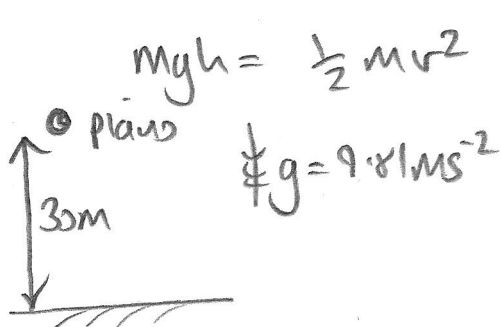 mgh = 1/2 mv²
piano
g = 9.81ms⁻²
30m